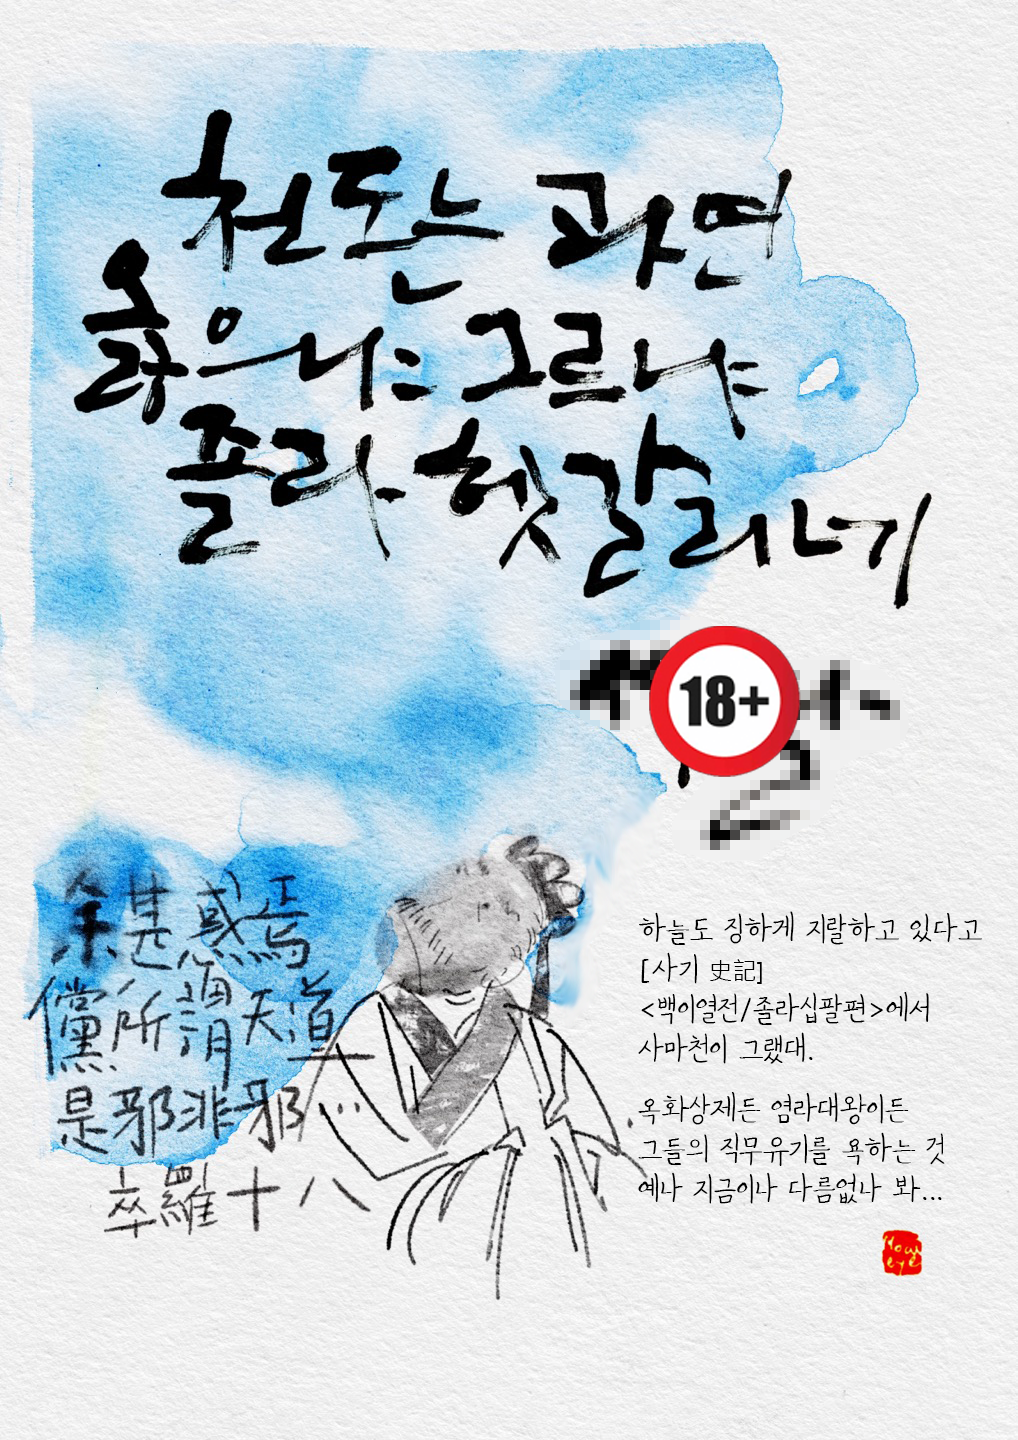 천도는 과연
옳으냐 그르냐
졸라 헷갈리네
18+
余甚惑焉
儻所謂天道
是邪非邪…
卒羅十八
하늘도 징하게 지랄하고 있다고
[사기 史記]
<백이열전/졸라십팔편>에서
사마천이 그랬대.
옥화상제든 염라대왕이든
그들의 직무유기를 욕하는 것
예나 지금이나 다름없나 봐...
How
eye